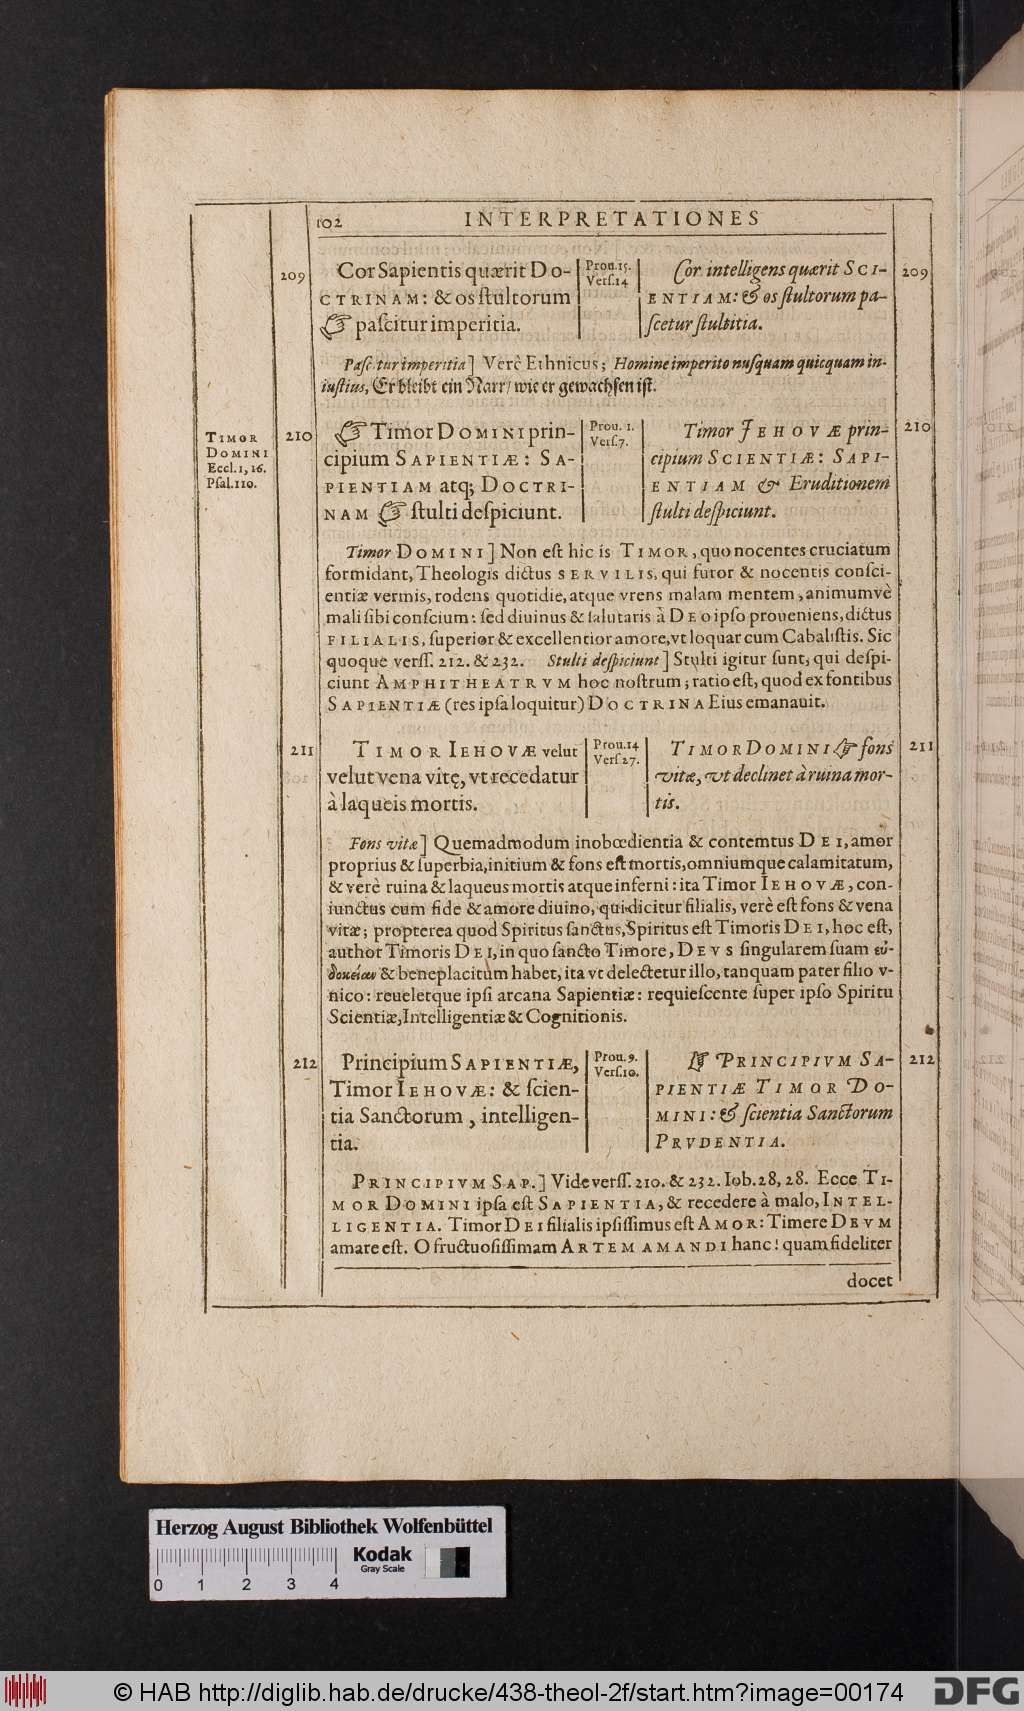 102 INTERPRETATIONES
209 Cor Sapientis quærit DO-
CTRINAM: & os ſtultorum
☞ paſcitur imperitia.
Prou. 15.
Verſ. 14
Cor intelligens quærit SCI-
ENTIAM: & os ſtultorum pa-
ſcetur ſtultitia.
209
Paſcitur imperitia] Verè Ethnicus; Homine imperito nuſquam quicquam in-
iuſtius, Er bleibt ein Narr/ wie er gewachſen iſt.
TIMOR
DOMINI
Eccl. 1, 16.
Pſal. 110.
210 ☞ Timor DOMINI prin-
cipium SAPIENTIÆ: SA-
PIENTIAM atq; DOCTRI-
NAM ☞ ſtulti deſpiciunt.
Prou. 1.
Verſ. 7.
Timor JEHOVÆ prin-
cipium SCIENTIÆ: SAPI-
ENTIAM & Eruditionem
ſtulti deſpiciunt.
210
Timor DOMINI] Non eſt hic is TIMOR, quo nocentes cruciatum
formidant, Theologis dictus SERVILIS, qui furor & nocentis conſci-
entiæ vermis, rodens quotidie, atque vrens malam mentem, animumvè
mali ſibi conſcium: ſed diuinus & ſalutaris à DEO ipſo proueniens, dictus
FILIALIS, ſuperior & excellentior amore, vt loquar cum Cabaliſtis. Sic
quoque verſſ. 212. & 232. Stulti deſpiciunt] Stulti igitur ſunt, qui deſpi-
ciunt AMPHITHEATRVM hoc noſtrum; ratio eſt, quod ex fontibus
SAPIENTIÆ (res ipſa loquitur) DOCTRINA Eius emanauit.
211 TIMOR IEHOVÆ velut
velut vena vitę, vt recedatur
à laqueis mortis.
Prou. 14
Verſ 27.
TIMOR DOMINI ☞ fons
vitæ, vt declinet à ruina mor-
tis.
211
Fons vitæ] Quemadmodum inobœdientia & contemtus DEI, amor
proprius & ſuperbia, initium & fons eſt mortis, omniumque calamitatum,
& verè ruina & laqueus mortis atque inferni: ita Timor IEHOVÆ, con-
iunctus cum fide & amore diuino, qui dicitur filialis, verè eſt fons & vena
vitæ; propterea quod Spiritus ſanctus, Spiritus eſt Timoris DEI, hoc eſt,
author Timoris DEI, in quo ſancto Timore, DEVS ſingularem ſuam εὐ-
δοκείαν & beneplacitum habet, ita vt delectetur illo, tanquam pater filio v-
nico: reueletque ipſi arcana Sapientiæ: requieſcente ſuper ipſo Spiritu
Scientiæ, Intelligentiæ & Cognitionis.
212 Principium SAPIENTIÆ,
Timor IEHOVÆ: & ſcien-
tia Sanctorum, intelligen-
tia.
Prou. 9.
Verſ. 10.
☞ PRINCIPIVM SA-
PIENTIÆ TIMOR DO-
MINI: & ſcientia Sanctorum
PRVDENTIA.
212
PRINCIPIVM SAP.] Vide verſſ. 210. & 232. Iob. 28, 28. Ecce TI-
MOR DOMINI ipſa eſt SAPIENTIA, & recedere à malo, INTEL-
LIGENTIA. Timor DEI filialis ipſiſſimus eſt AMOR: Timere DEVM
amare eſt. O fructuoſiſſimam ARTEM AMANDI hanc! quam fideliter
docet
Herzog August Bibliothek Wolfenbüttel
0 1 2 3 4
Kodak
Gray Scale
© HAB http://diglib.hab.de/drucke/438-theol-2f/start.htm?image=00174
DFG